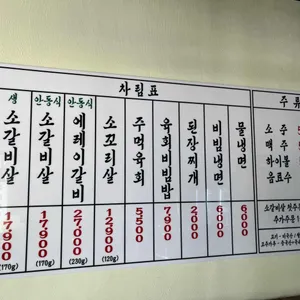 차림표
생
소갈비살
17900
(170g)
안동식
소갈비살
17900
(170g)
안동식
에레이갈비
27000
(230g)
소꼬리살
(120g)
주먹육회
5500
육회비빔밥
7900
된장찌개
2000
비빔냉면
6000
물냉면
6000
주류
소주
맥주
하이볼
음료수